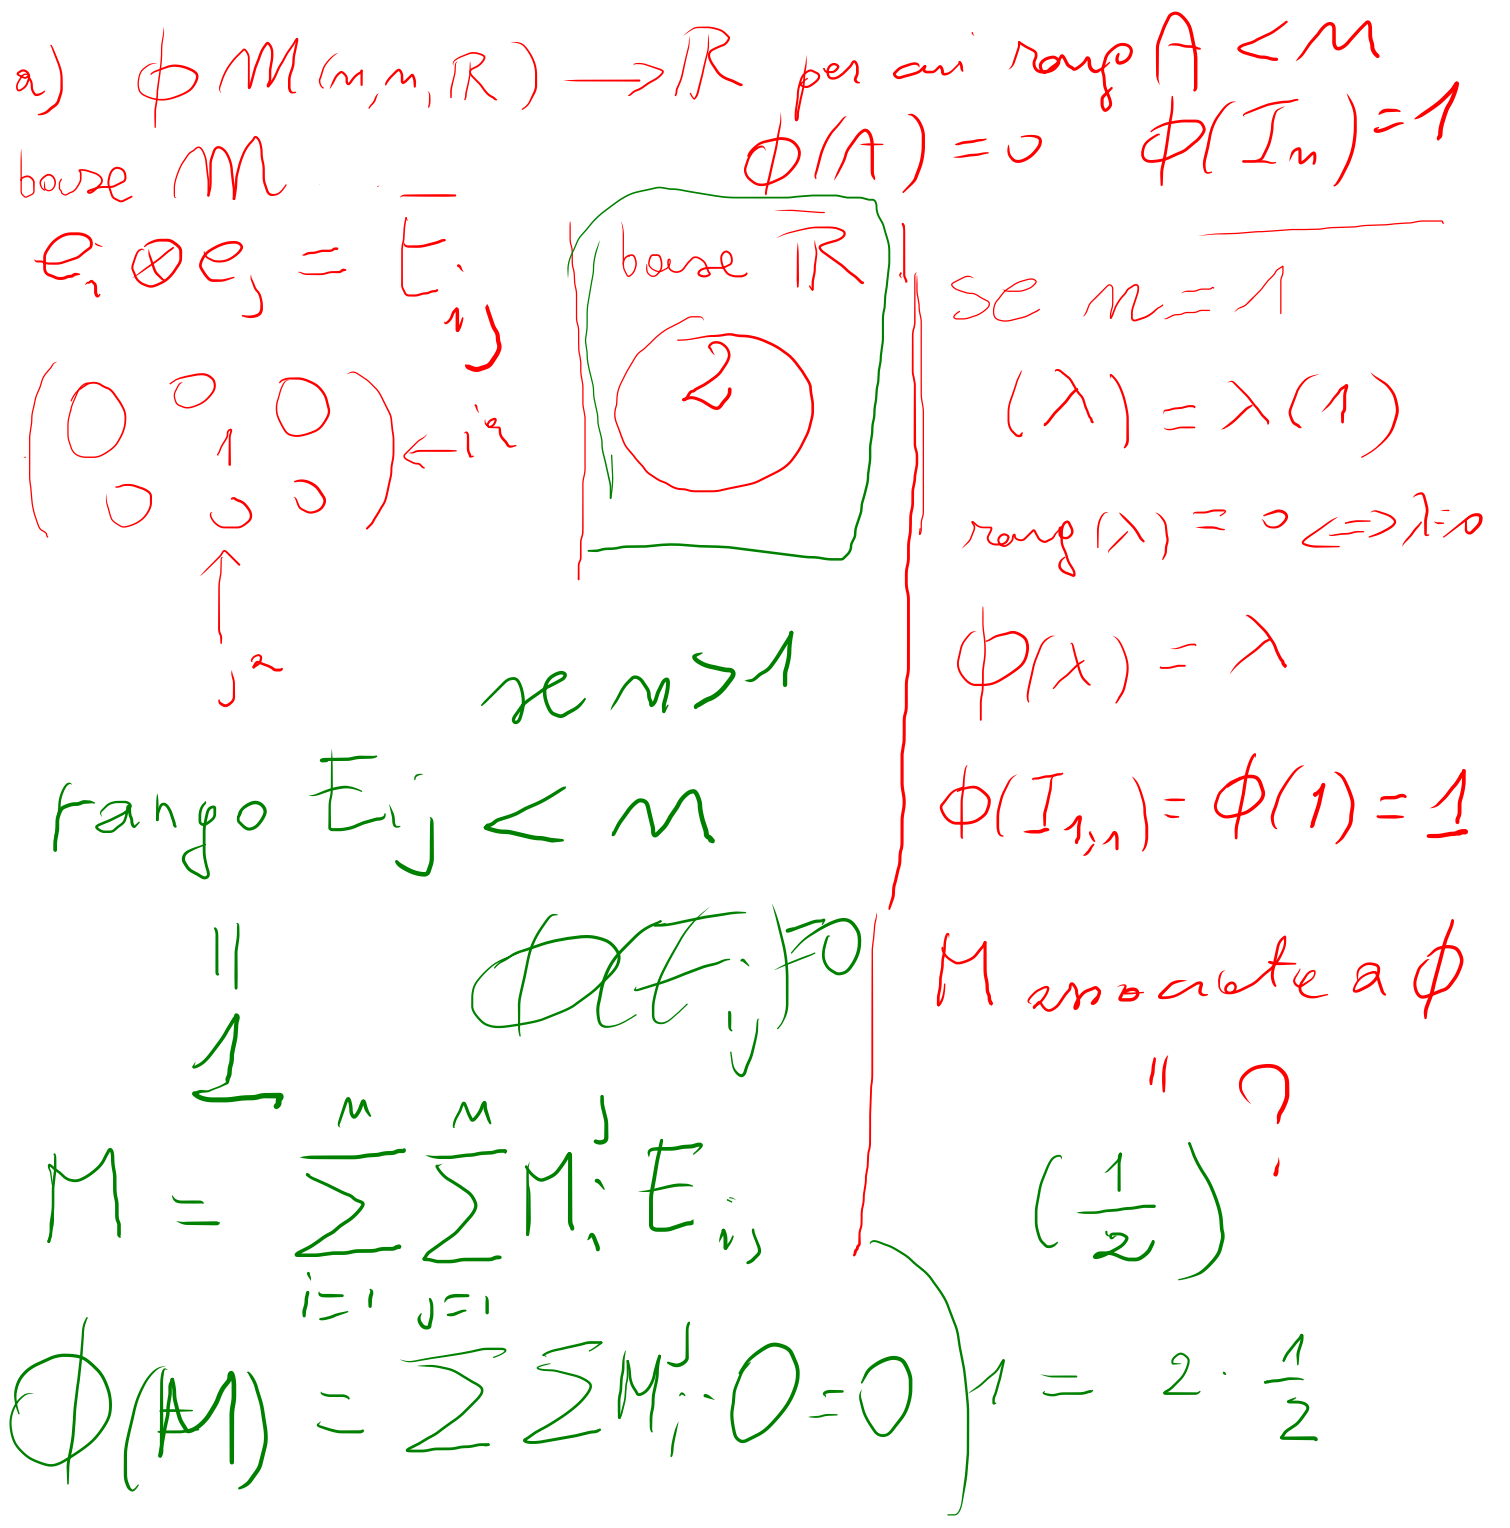 a) ϕ M(n,n,ℝ) ⟶ ℝ per cui rango A < n
ϕ(A) = 0 ϕ(Iₙ) = 1
base M
eᵢ ⊗ eⱼ = Eᵢⱼ
( 0 0 0
1
0 0 0 ) ← iᵃ
↑
jᵃ
base ℝ
2
se n = 1
(λ) = λ(1)
rang(λ) = 0 <=> λ=0
ϕ(λ) = λ
ϕ(I₁,₁) = ϕ(1) = 1
M associata a ϕ
" ?
(1/2)
1 = 2 · 1/2
se n > 1
rango Eᵢⱼ < n
||
1
ϕ(Eᵢⱼ)=0
M = ∑ᵢ₌₁ⁿ ∑ⱼ₌₁ⁿ Mᵢʲ Eᵢⱼ
ϕ(M) = ∑ ∑ Mᵢʲ · 0 = 0